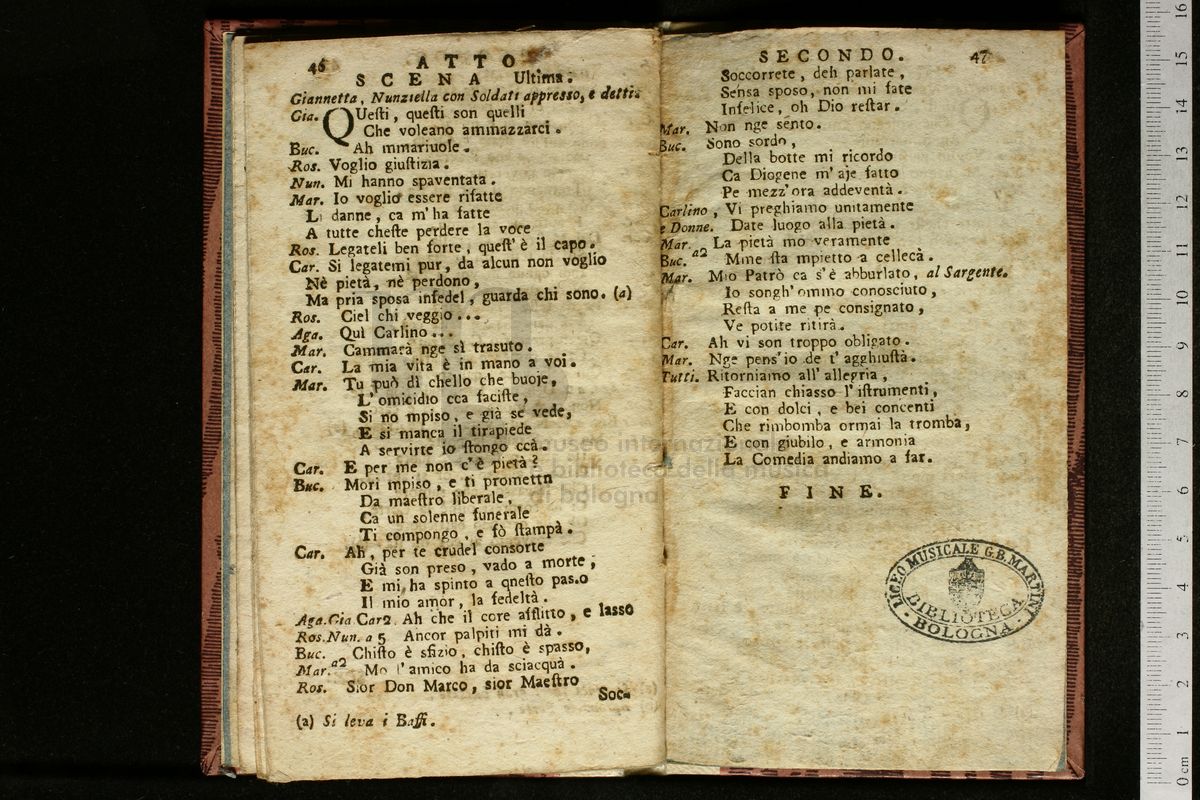 46 ATTO
SCENA Ultima.
Giannetta, Nunziella con Soldati appresso, e detti.
Gia. QUesti, questi son quelli
Che voleano ammazzarci.
Buc. Ah mmariuole.
Ros. Voglio giustizia.
Nun. Mi hanno spaventata.
Mar. Io voglio essere rifatte
Li danne, ca m'ha fatte
A tutte cheste perdere la voce
Ros. Legateli ben forte, quest'è il capo.
Car. Si legatemi pur, da alcun non voglio
Nè pietà, nè perdono,
Ma pria sposa infedel, guarda chi sono. (a)
Ros. Ciel chi veggio...
Aga. Quì Carlino...
Mar. Cammarà nge sì trasuto.
Car. La mia vita è in mano a voi.
Mar. Tu può dì chello che buoje,
L'omicidio cca faciste,
Si no mpiso, e già se vede,
E si manca il tirapiede
A servirte io stongo ccà.
Car. E per me non c'è pietà?
Buc. Mori mpiso, e ti promettn
Da maestro liberale,
Ca un solenne funerale
Ti compongo, e fò stampà.
Car. Ah, per te crudel consorte
Già son preso, vado a morte,
E mi ha spinto a qnesto passo
Il mio amor, la fedeltà.
Aga.Gia.Car2. Ah che il core afflitto, e lasso
Ros.Nun. a 5 Ancor palpiti mi dà.
Buc. Chisto è sfizio, chisto è spasso,
Mar. a2 Mo l'amico ha da sciacquà.
Ros. Sior Don Marco, sior Maestro
Soc-
(a) Si leva i Baffi.
SECONDO. 47
Soccorrete, deh parlate,
Sensa sposo, non mi fate
Infelice, oh Dio restar.
Mar. Non nge sento.
Buc. Sono sordo,
Della botte mi ricordo
Ca Diogene m'aje fatto
Pe mezz'ora addeventà.
Carlino, Vi preghiamo unitamente
e Donne. Date luogo alla pietà.
Mar. La pietà mo veramente
Buc. a2 Mme sta mpietto a cellecà.
Mar. Mio Patrò ca s'è abburlato, al Sargente.
Io songh'ommo conosciuto,
Resta a me pe consignato,
Ve potite ritirà.
Car. Ah vi son troppo obligato.
Mar. Nge pens'io de t'agghiustà.
Tutti. Ritorniamo all'allegria,
Faccian chiasso l'istrumenti,
E con dolci, e bei concenti
Che rimbomba ormai la tromba,
E con giubilo, e armonia
La Comedia andiamo a far.
FINE.
LICEO MUSICALE G.B. MARTINI
BIBLIOTECA
BOLOGNA
museo internazionale
e biblioteca della musica
di bologna
0 cm 1 2 3 4 5 6 7 8 9 10 11 12 13 14 15 16